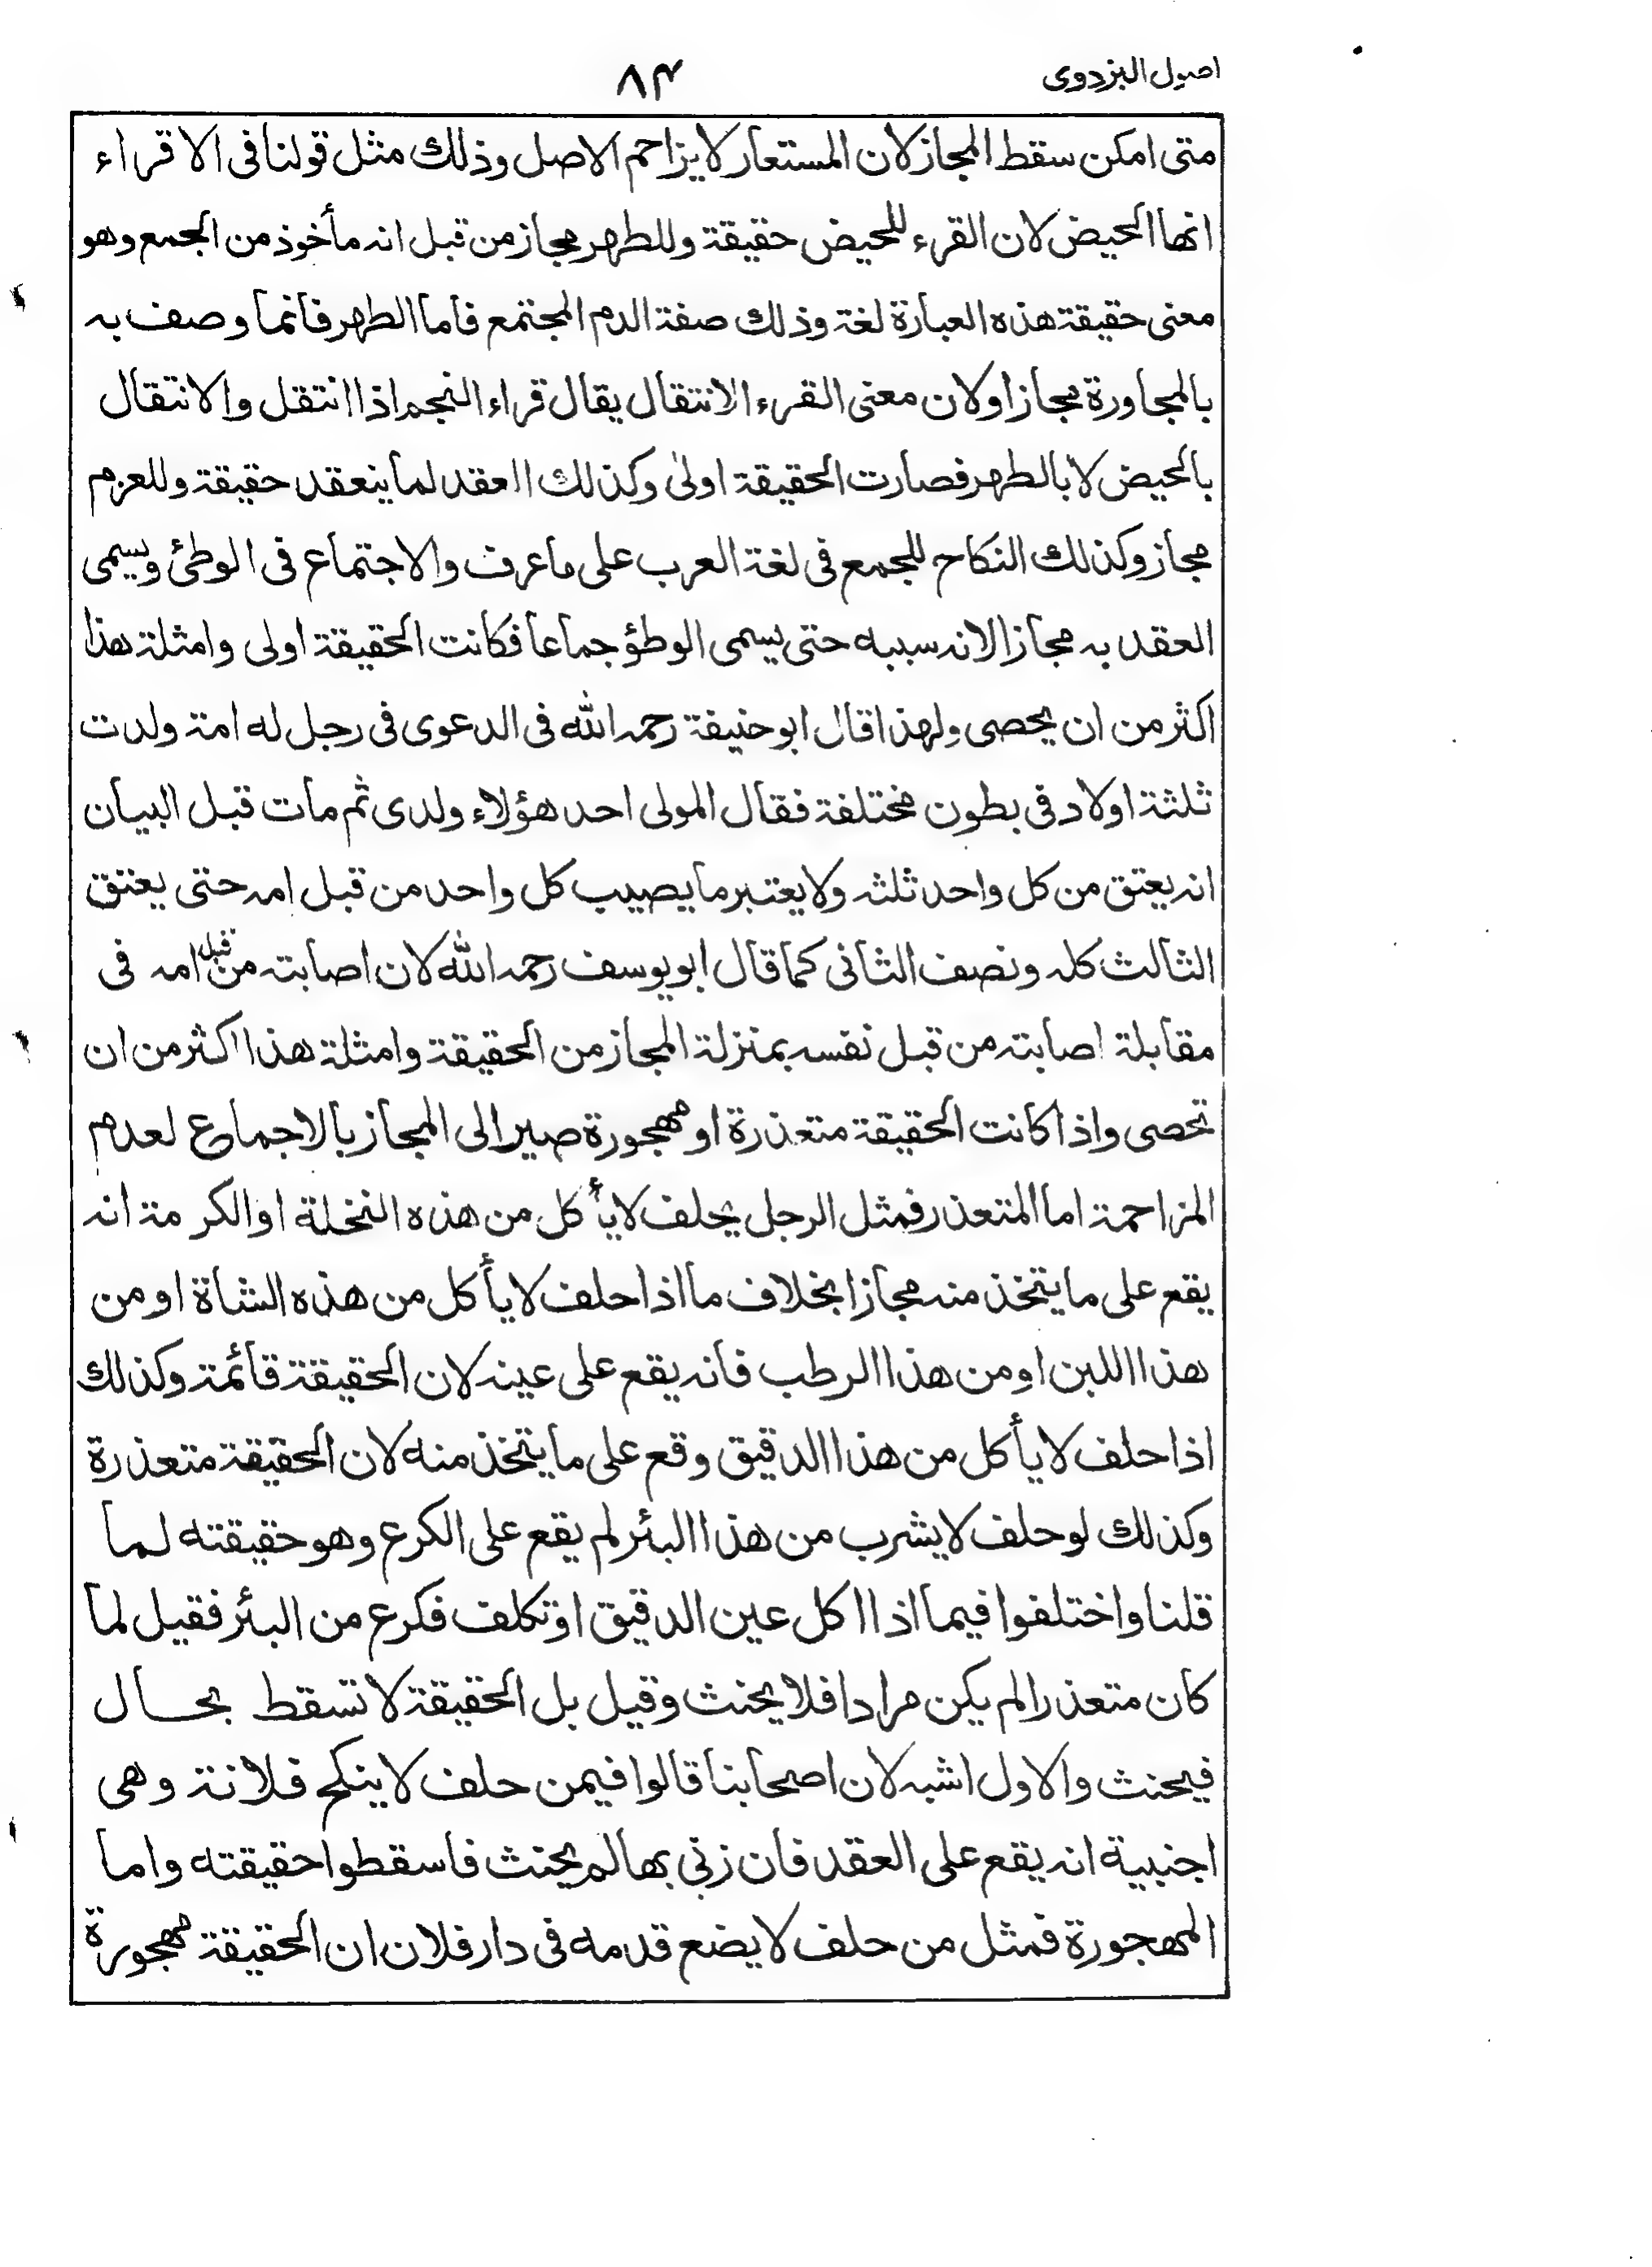 اصول البزدوى
۸۴
متى امكن سقط المجاز لان المستعار لا يزاحم الاصل وذلك مثل قولنا فى الاقراء
انها الحيض لان القرء للحيض حقيقة وللطهر مجاز من قبل انه مأخوذ من الجمع وهو
معنى حقيقة هذه العبارة لغة وذلك صفة الدم المجتمع فاما الطهر فانما وصف به
بالمجاورة مجازا ولان معنى القرء الانتقال يقال قراء النجم اذا انتقل والانتقال
بالحيض لا بالطهر فصارت الحقيقة اولىٰ وكذلك العقد لما ينعقد حقيقة وللعزم
مجاز وكذلك النكاح للجمع فى لغة العرب على ما عرف والاجتماع فى الوطئ ويسمى
العقد به مجازا لانه سببه حتى يسمى الوطؤ جماعا فكانت الحقيقة اولى وامثلة هذا
اكثر من ان يحصى ولهذا قال ابو حنيفة رحمه الله فى الدعوى فى رجل له امة ولدت
ثلثة اولاد فى بطون مختلفة فقال المولى احد هؤلاء ولدى ثم مات قبل البيان
انه يعتق من كل واحد ثلثه ولا يعتبر ما يصيب كل واحد من قبل امه حتى يعتق
الثالث كله ونصف الثانى كما قال ابو يوسف رحمه الله لان اصابته من قبل امه فى
مقابلة اصابته من قبل نفسه بمنزلة المجاز من الحقيقة وامثلة هذا اكثر من ان
تحصى واذا كانت الحقيقة متعذرة او مهجورة صير الى المجاز بالاجماع لعدم
المزاحمة اما المتعذر فمثل الرجل يحلف لا يأكل من هذه النخلة او الكرمة انه
يقع على ما يتخذ منه مجازا بخلاف ما اذا حلف لا يأكل من هذه الشاة او من
هذا اللبن او من هذا الرطب فانه يقع على عينه لان الحقيقة قائمة وكذلك
اذا حلف لا يأكل من هذا الدقيق وقع على ما يتخذ منه لان الحقيقة متعذرة
وكذلك لو حلف لا يشرب من هذا البئر لم يقع على الكرع وهو حقيقته لما
قلنا واختلفوا فيما اذا اكل عين الدقيق او تكلف فكرع من البئر فقيل لما
كان متعذرا لم يكن مرادا فلا يحنث وقيل بل الحقيقة لا تسقط بحال
فيحنث والاول اشبه لان اصحابنا قالوا فيمن حلف لا ينكح فلانة وهى
اجنبية انه يقع على العقد فان زنى بها لم يحنث فاسقطوا حقيقته واما
المهجورة فمثل من حلف لا يضع قدمه فى دار فلان ان الحقيقة مهجورة